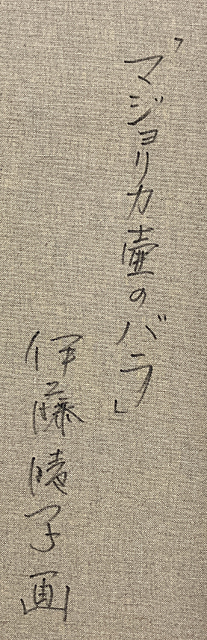 「マジョリカ壷のバラ」
伊藤晴子画